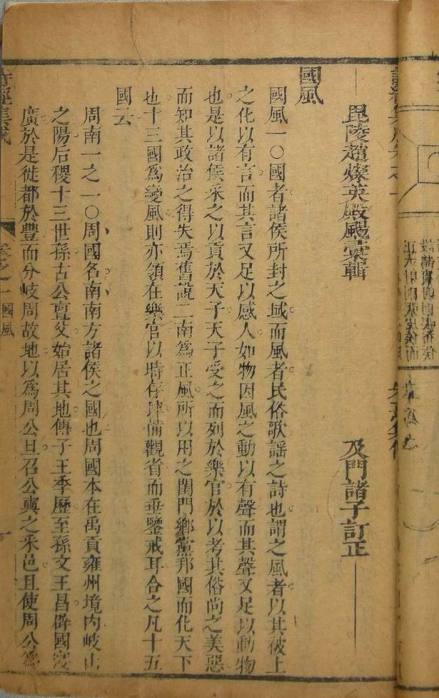 毘陵趙燦英殿颺彙輯
及門諸子訂正
國風
國風一○國者諸侯所封之域而風者民俗歌謡之詩也謂之風者以其被上
之化以有言而其言又足以感人如物因風之動以有聲而其聲又足以動物
也是以諸侯采之以貢於天子天子受之而列於樂官於以考其俗尚之美惡
而知其政治之得失焉舊說二南為正風所以用之閨門鄉黨邦國而化天下
也十三國為變風則亦領在樂官以時存肄備觀省而垂鑒戒耳合之凡十五
國云
周南一之一○周國名南南方諸侯之國也周國本在禹貢雍州境內岐山
之陽后稷十三世孫古公亶父始居其地傳子王季歷至孫文王昌辟國寖
廣於是徙都於豐而分岐周故地以為周公旦召公奭之采邑且使周公為
詩經集成
卷之一 國風